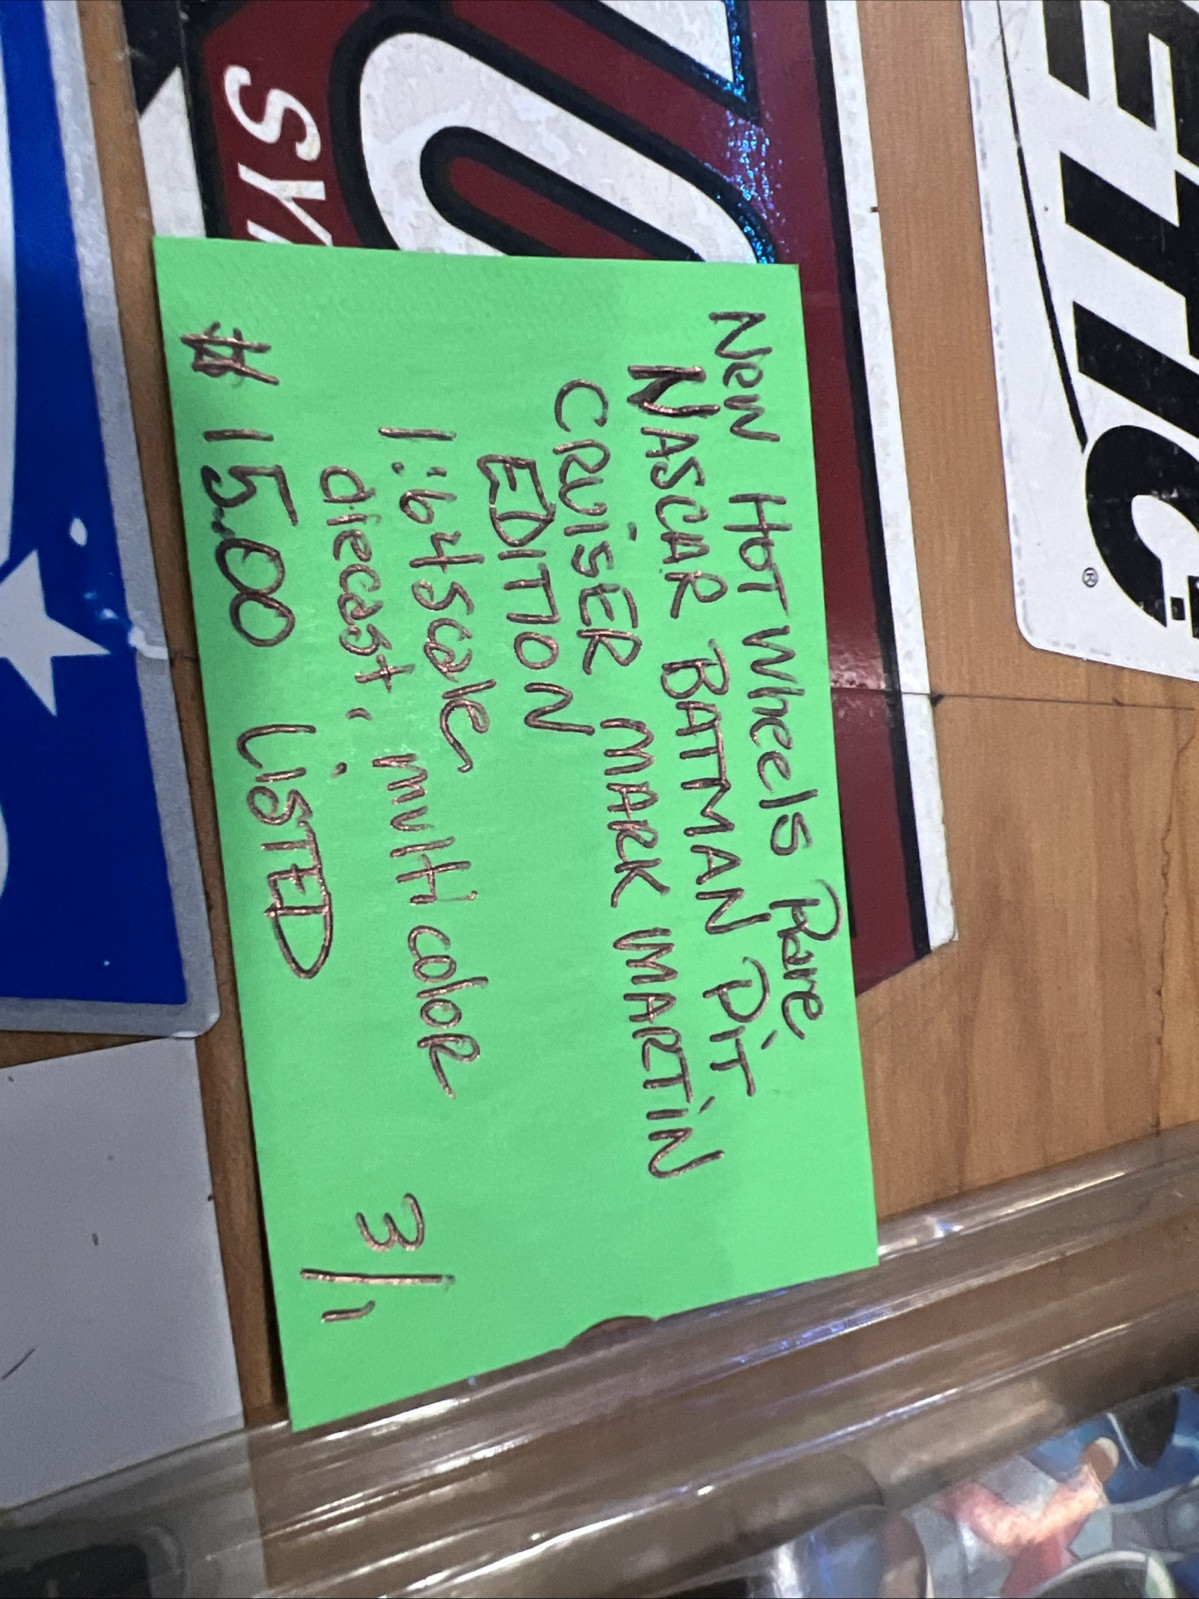 New Hot Wheels Rare
NASCAR BATMAN PIT
CRUISER MARK MARTIN
EDITION
1:64 scale
diecast, multi color
$ 15.00 LISTED
3/1
SY
®